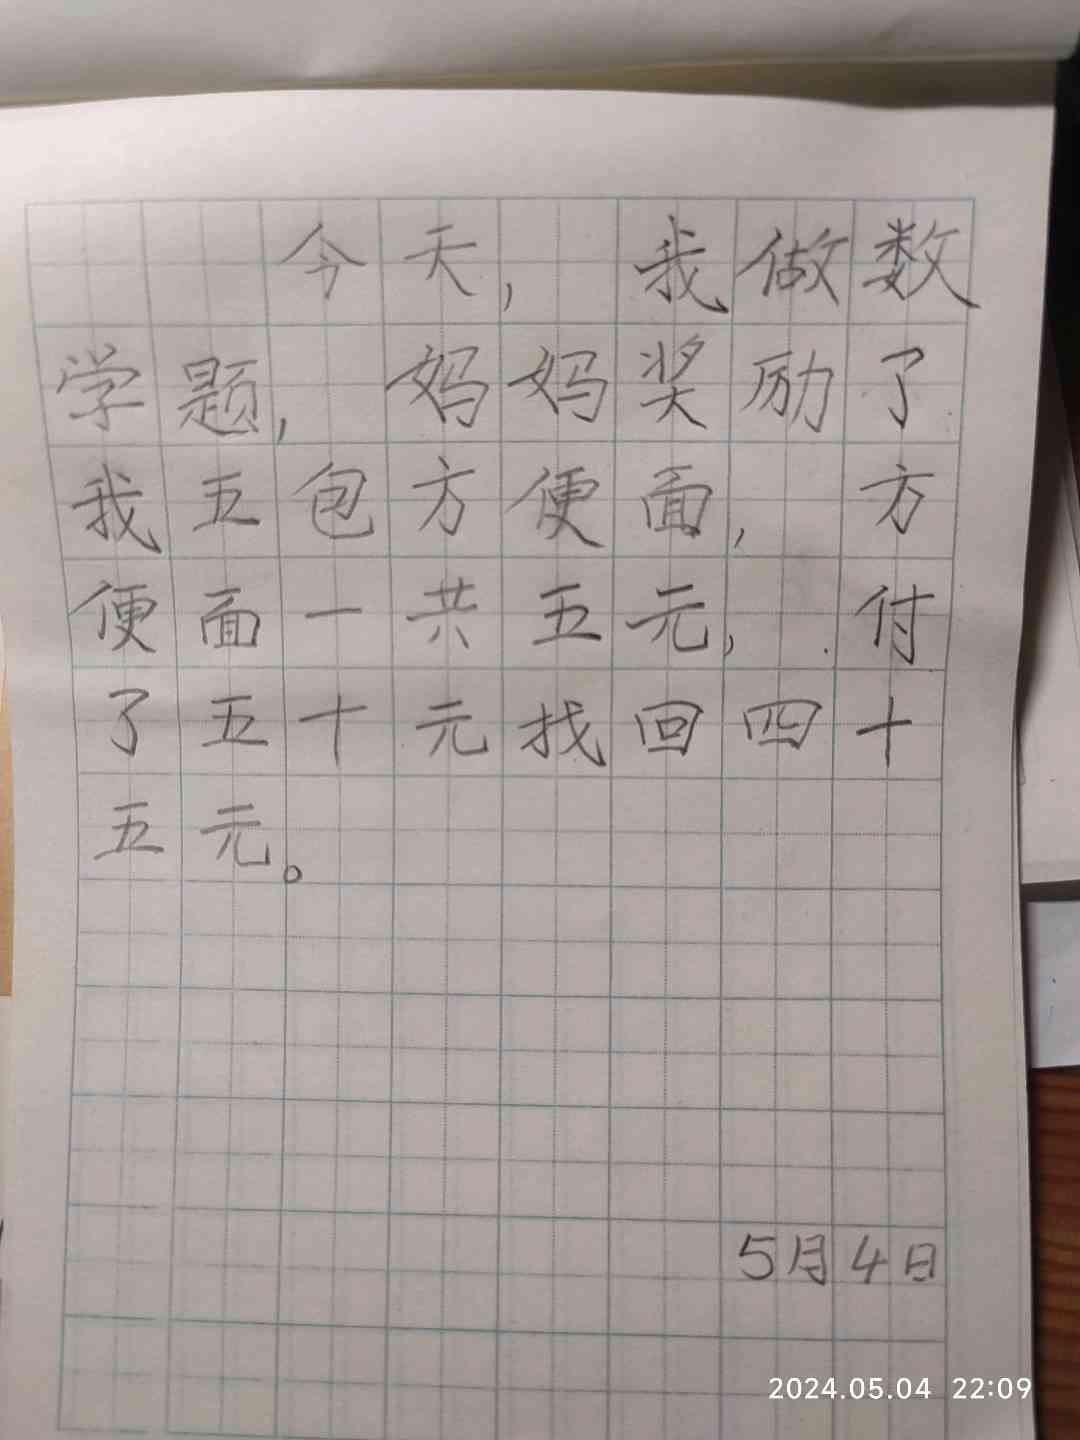 今天，我做数
学题，妈妈奖励了
我五包方便面，方
便面一共五元，付
了五十元找回四十
五元。
5月4日
2024.05.04 22:09